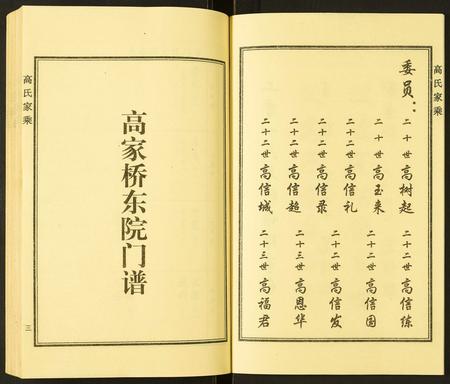 高氏家乘
委员：
二十世 高树起
二十世 高玉来
二十二世 高信礼
二十二世 高信录
二十二世 高信超
二十二世 高信城
二十二世 高信练
二十二世 高信国
二十二世 高信发
二十三世 高恩华
二十三世 高福君
高氏家乘
高家桥东院门谱
三